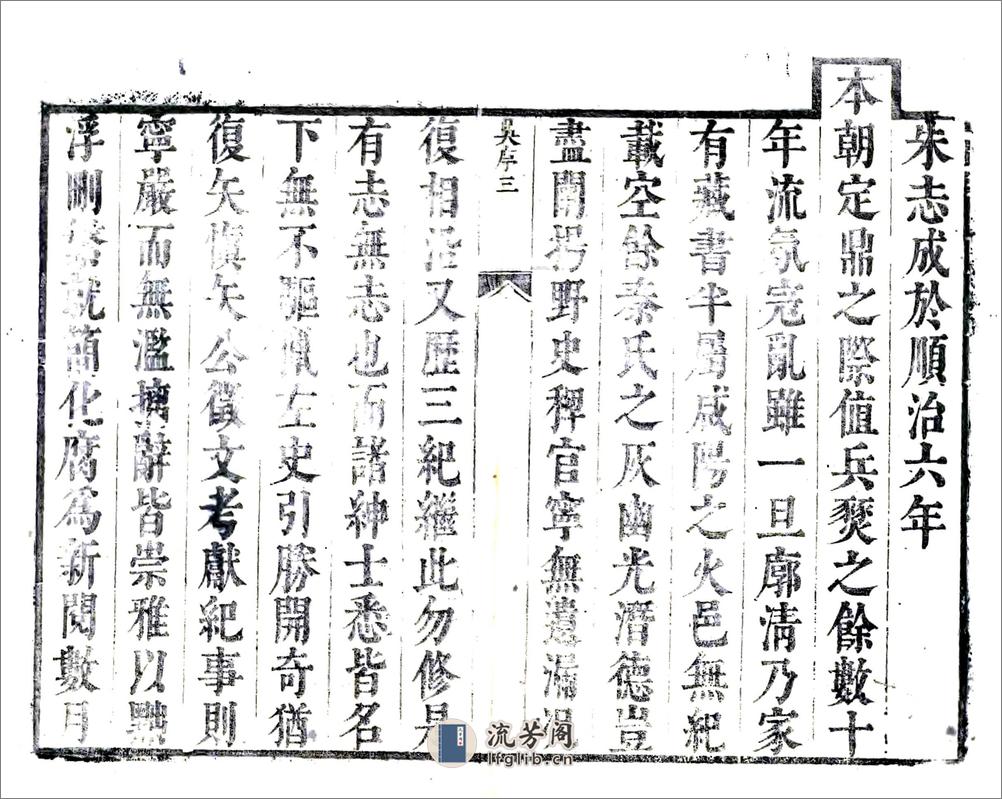 朱志成於順治六年
本朝定鼎之際值兵燹之餘數十
年流氛寇亂雖一旦廓清乃家
有藏書半屬咸陽之火邑無紀
載空餘秦氏之灰幽光潛德豈
盡闡揚野史稗官寧無遺漏
吳序三
復相沿又歷三紀繼此勿修是
有志無志也而諸紳士悉皆名
下無不驅懺左史引勝開奇猶
復矢慎矢公徵文考獻紀事則
寧嚴而無濫摛辭皆崇雅以黜
浮刪繁就簡化腐為新閱數月
流芳阁
lfglib.cn